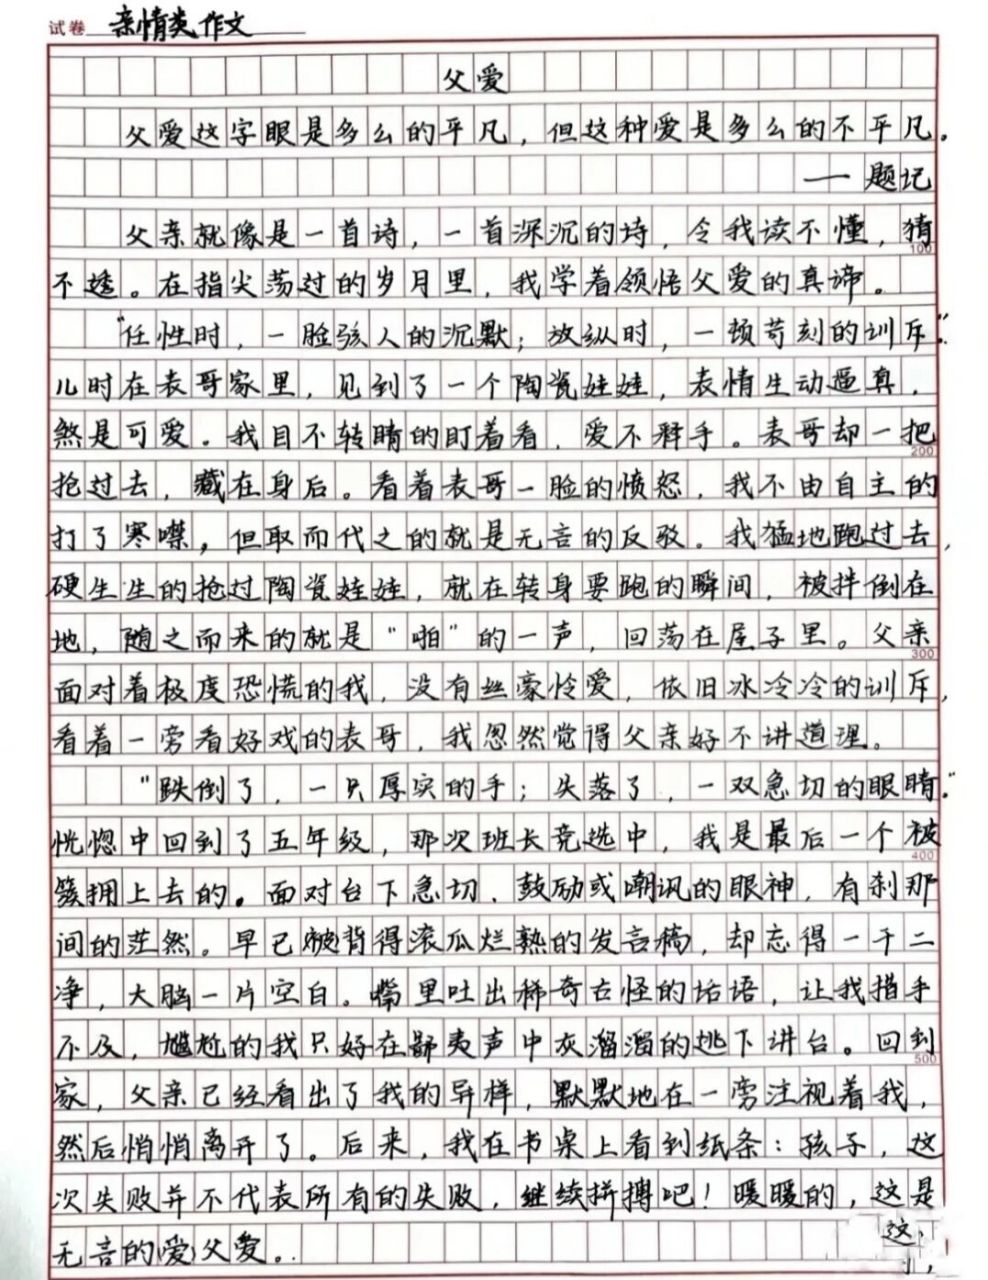 试卷 亲情类作文
父爱
父爱这字眼是多么的平凡，但这种爱是多么的不平凡。
—— 题记
父亲就像是一首诗，一首深沉的诗，令我读不懂，猜
100
不透。在指尖荡过的岁月里，我学着领悟父爱的真谛。
“任性时，一脸骇人的沉默；放纵时，一顿苛刻的训斥”.
儿时在表哥家里，见到了一个陶瓷娃娃，表情生动逼真，
煞是可爱。我目不转睛的盯着看，爱不释手。表哥却一把
200
抢过去，藏在身后。看着表哥一脸的愤怒，我不由自主的
打了寒噤，但取而代之的就是无言的反驳。我猛地跑过去，
硬生生的抢过陶瓷娃娃，就在转身要跑的瞬间，被拌倒在
地，随之而来的就是“啪”的一声，回荡在屋子里。父亲
300
面对着极度恐慌的我，没有丝豪怜爱，依旧冰冷冷的训斥，
看着一旁看好戏的表哥，我忽然觉得父亲好不讲道理。
“跌倒了，一只厚实的手；失落了，一双急切的眼睛.”
恍惚中回到了五年级，那次班长竞选中，我是最后一个被
400
簇拥上去的。面对台下急切、鼓励或嘲讽的眼神，有刹那
间的茫然。早已被背得滚瓜烂熟的发言稿，却忘得一干二
净，大脑一片空白。嘴里吐出稀奇古怪的话语，让我措手
不及，尴尬的我只好在鄙夷声中灰溜溜的逃下讲台。回到
500
家，父亲已经看出了我的异样，默默地在一旁注视着我，
然后悄悄离开了。后来，我在书桌上看到纸条：孩子，这
次失败并不代表所有的失败，继续拼搏吧！暖暖的，这是
无言的爱父爱。
这，